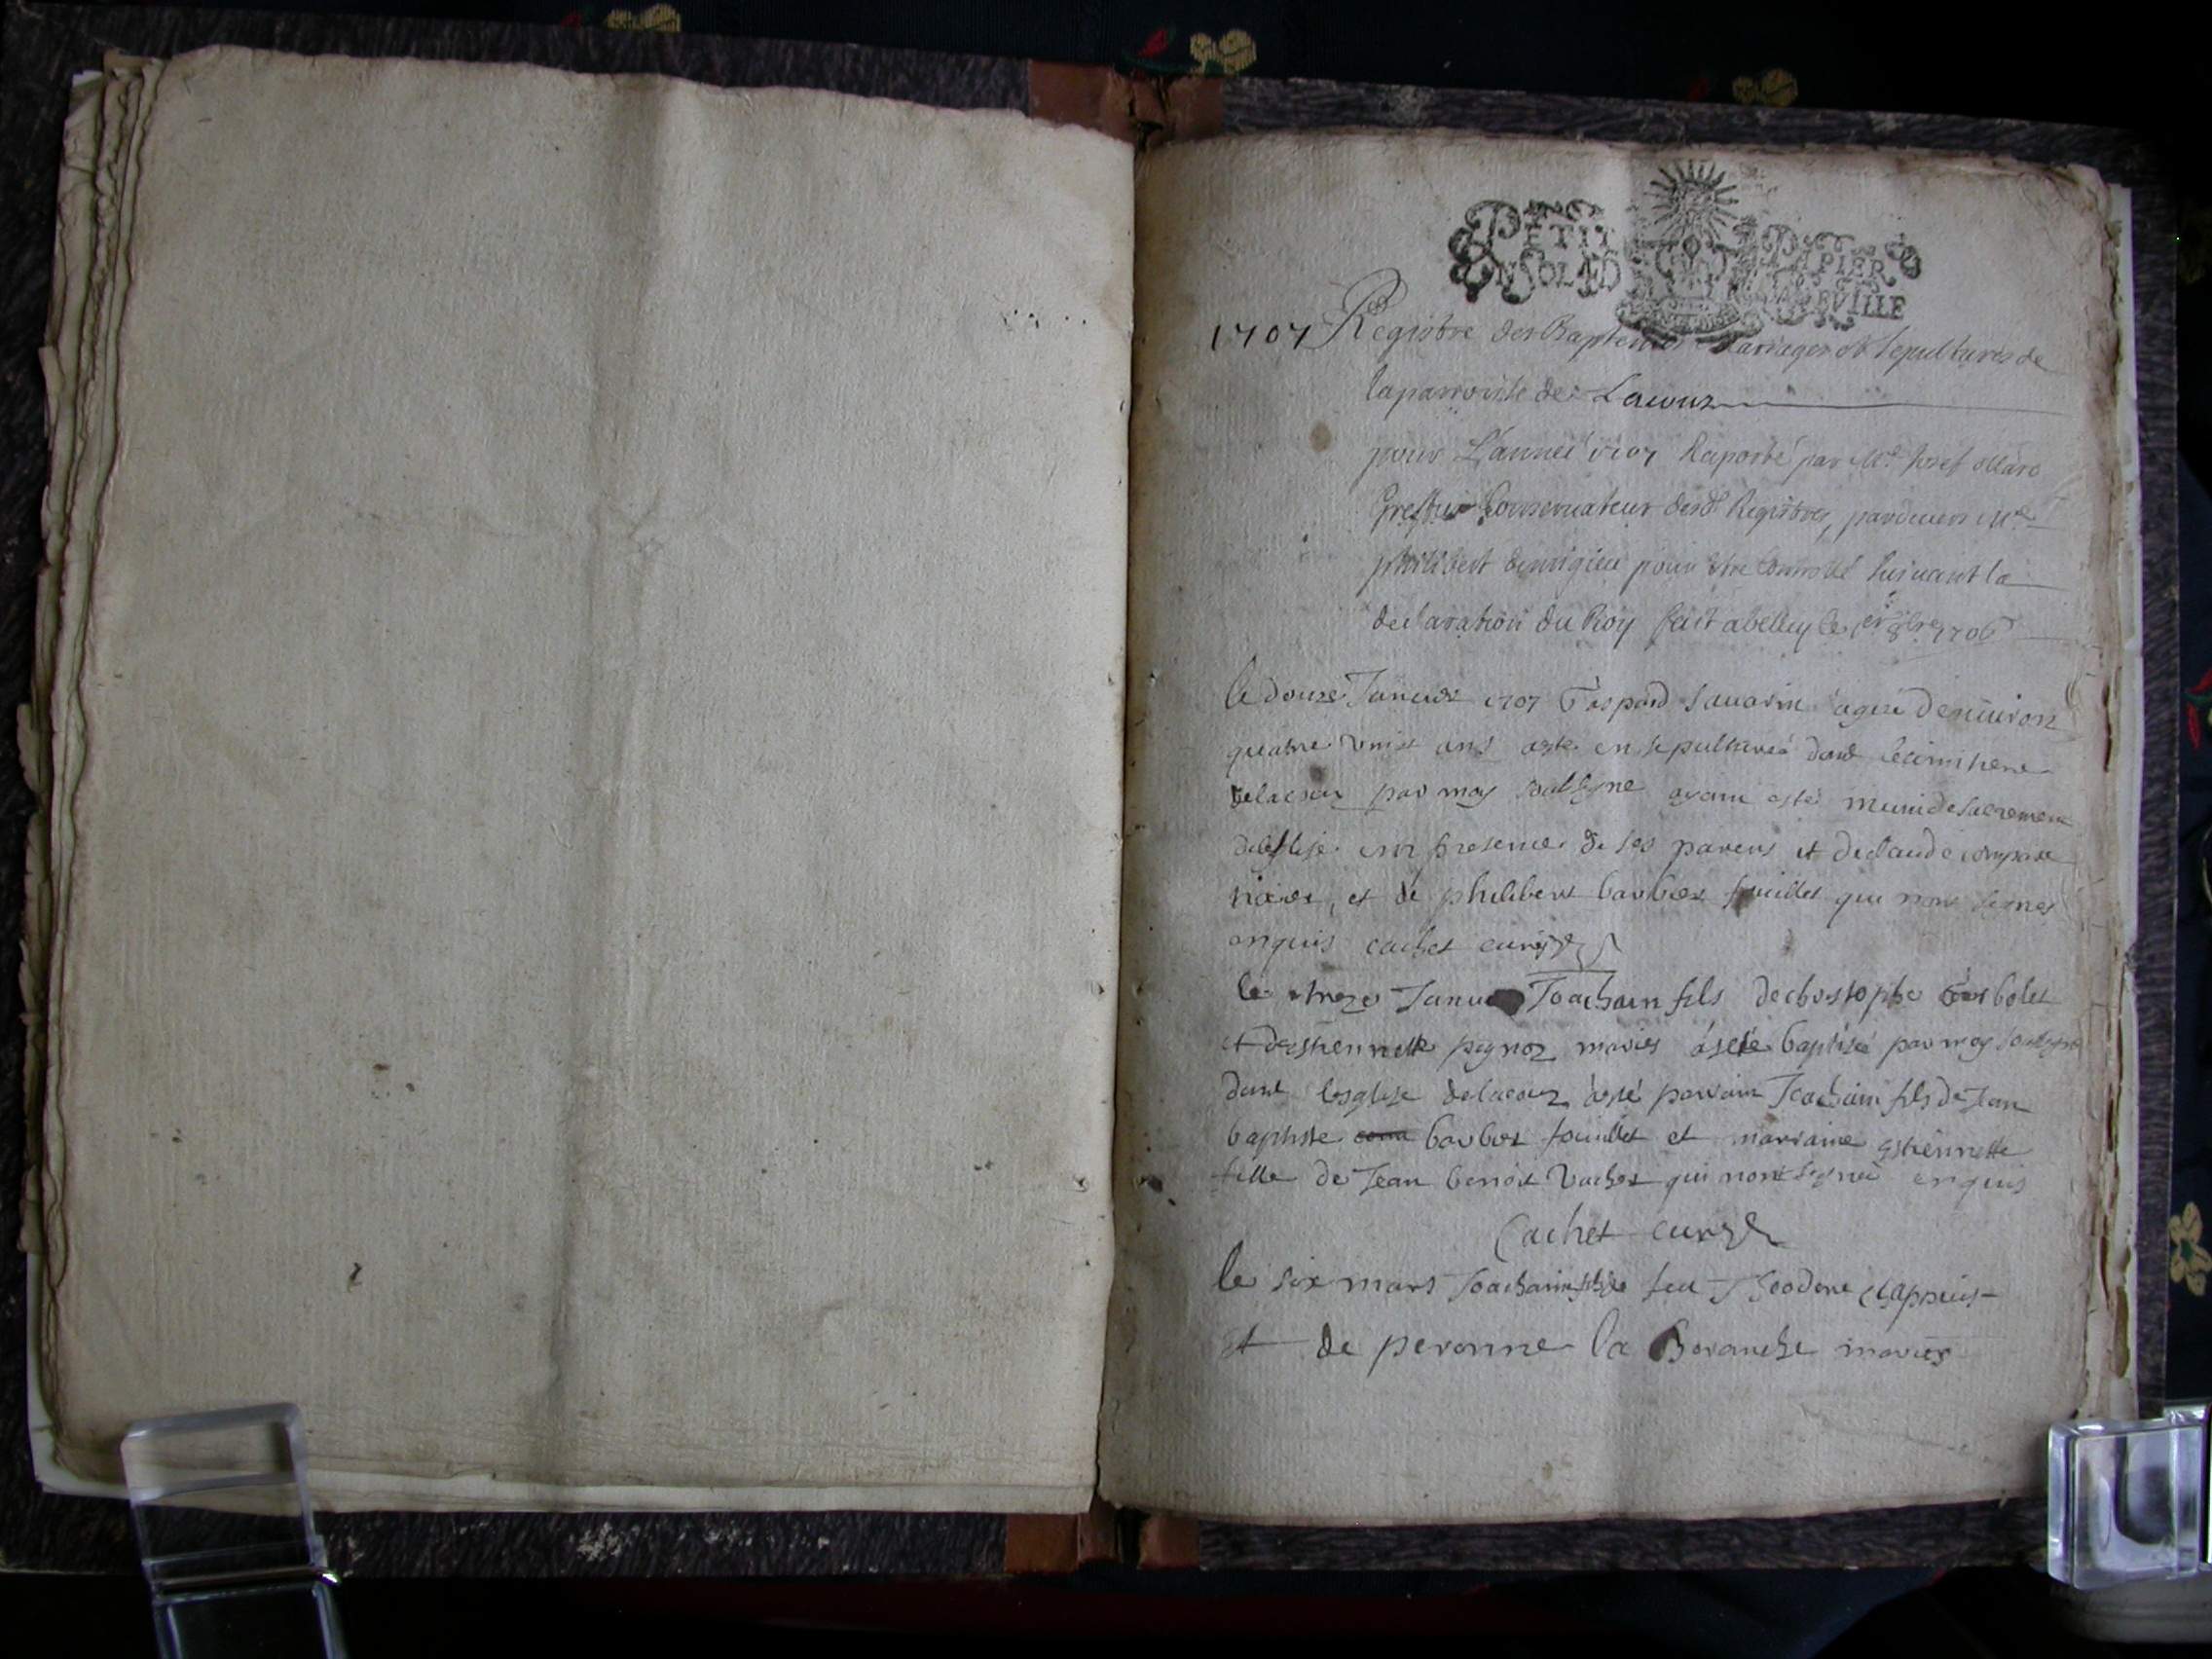 PETIT PAPIER
UN SOL 4D LA FEUILLE
1707 Registre des Baptemes Mariages et Sepultures de
la parroisse de Lacouz
pour L'année 1707 Raporté par Me
Greffier Conservateur desd Registres, pardevers Me
philibert demigieu pour être Controllé suivant la
declaration du Roy fait a belley le 1er 8bre 1706
le douze Janvier 1707 Gaspard Savarin agee denviron
quatre vinxt ans aste ensepulturé dans le cimitiere
delacouz par moy soubsyne ayant estes muni de sacrement
delesglise en presence de ses parens et de claude
et de philibert barbier fouillet qui nont signes
enquis cachet curé
le treze Janvier Joachain fils de christophe
et destiennette pognoz mariés asété baptisé par moy soubsyne
dans lesglise delacouz asté parrain Joachain fils de Jean
baptiste barbier fouillet et marraine estiennette
fille de Jean benoit vachet qui nont signé enquis
Cachet curé
le six mars Joachain fils de feu Theodore
et de peronne la Boranche mariés